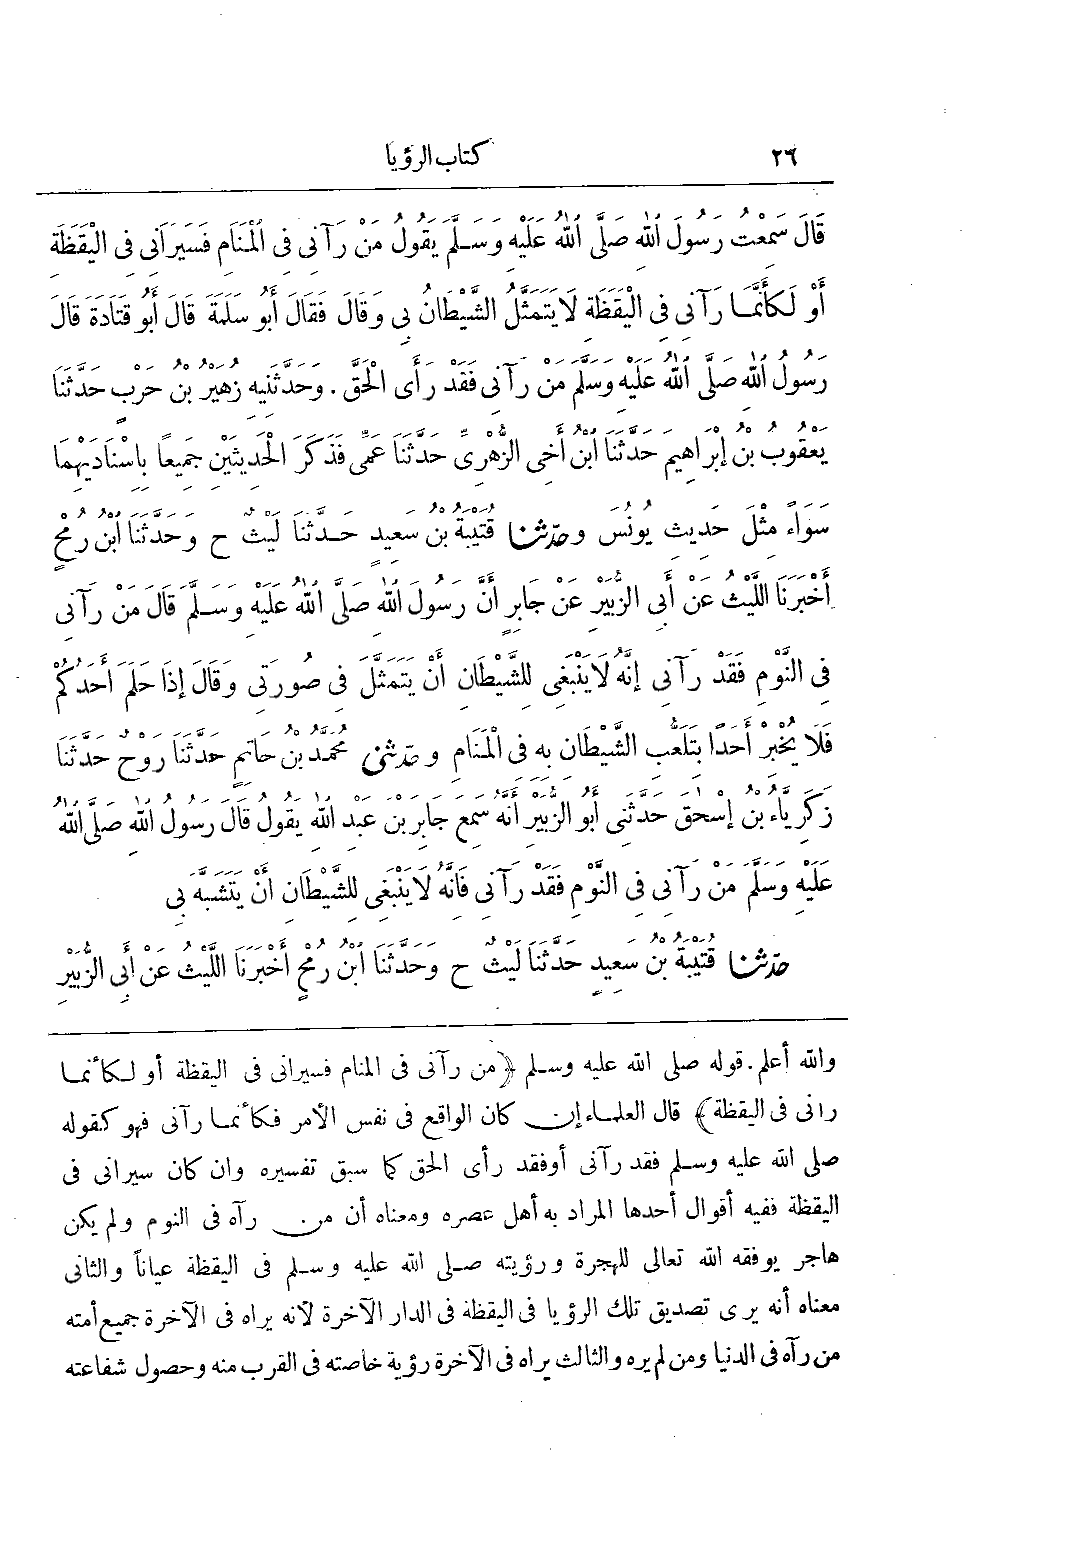 ٢٦ كتاب الرؤيا
قَالَ سَمِعْتُ رَسُولَ اللهِ صَلَّى اللهُ عَلَيْهِ وَسَلَّمَ يَقُولُ مَنْ رَآنِى فِى الْمَنَامِ فَسَيَرَانِى فِى الْيَقَظَةِ
أَوْ لَكَأَنَّمَا رَآنِى فِى الْيَقَظَةِ لَا يَتَمَثَّلُ الشَّيْطَانُ بِى وَقَالَ فَقَالَ أَبُو سَلَمَةَ قَالَ أَبُو قَتَادَةَ قَالَ
رَسُولُ اللهِ صَلَّى اللهُ عَلَيْهِ وَسَلَّمَ مَنْ رَآنِى فَقَدْ رَأَى الْحَقَّ . وَحَدَّثَنِيهِ زُهَيْرُ بْنُ حَرْبٍ حَدَّثَنَا
يَعْقُوبُ بْنُ إِبْرَاهِيمَ حَدَّثَنَا ابْنُ أَخِى الزُّهْرِىِّ حَدَّثَنَا عَمِّى فَذَكَرَ الْحَدِيثَيْنِ جَمِيعًا بِإِسْنَادَيْهِمَا
سَوَاءً مِثْلَ حَدِيثِ يُونُسَ وحَدَّثَنَا قُتَيْبَةُ بْنُ سَعِيدٍ حَدَّثَنَا لَيْثٌ ح وَحَدَّثَنَا ابْنُ رُمْحٍ
أَخْبَرَنَا اللَّيْثُ عَنْ أَبِى الزُّبَيْرِ عَنْ جَابِرٍ أَنَّ رَسُولَ اللهِ صَلَّى اللهُ عَلَيْهِ وَسَلَّمَ قَالَ مَنْ رَآنِى
فِى النَّوْمِ فَقَدْ رَآنِى إِنَّهُ لَا يَنْبَغِى لِلشَّيْطَانِ أَنْ يَتَمَثَّلَ فِى صُورَتِى وَقَالَ إِذَا حَلَمَ أَحَدُكُمْ
فَلَا يُخْبِرْ أَحَدًا بِتَلَعُّبِ الشَّيْطَانِ بِهِ فِى الْمَنَامِ وحَدَّثَنِى مُحَمَّدُ بْنُ حَاتِمٍ حَدَّثَنَا رَوْحٌ حَدَّثَنَا
زَكَرِيَّاءُ بْنُ إِسْحٰقَ حَدَّثَنِى أَبُو الزُّبَيْرِ أَنَّهُ سَمِعَ جَابِرَ بْنَ عَبْدِ اللهِ يَقُولُ قَالَ رَسُولُ اللهِ صَلَّى اللهُ
عَلَيْهِ وَسَلَّمَ مَنْ رَآنِى فِى النَّوْمِ فَقَدْ رَآنِى فَانَّهُ لَا يَنْبَغِى لِلشَّيْطَانِ أَنْ يَتَشَبَّهَ بِى
حَدَّثَنَا قُتَيْبَةُ بْنُ سَعِيدٍ حَدَّثَنَا لَيْثٌ ح وَحَدَّثَنَا ابْنُ رُمْحٍ أَخْبَرَنَا اللَّيْثُ عَنْ أَبِى الزُّبَيْرِ
والله أعلم . قوله صلى الله عليه وسلم ﴿من رآنى فى المنام فسيرانى فى اليقظة أو لكأنما
رانى فى اليقظة﴾ قال العلماء إن كان الواقع فى نفس الأمر فكأنما رآنى فهو كقوله
صلى الله عليه وسلم فقد رآنى أو فقد رأى الحق كما سبق تفسيره وان كان سيرانى فى
اليقظة ففيه أقوال أحدها المراد به أهل عصره ومعناه أن من رآه فى النوم ولم يكن
هاجر يوفقه الله تعالى للهجرة ورؤيته صلى الله عليه وسلم فى اليقظة عياناً والثانى
معناه أنه يرى تصديق تلك الرؤيا فى اليقظة فى الدار الآخرة لأنه يراه فى الآخرة جميع أمته
من رآه فى الدنيا ومن لم يره والثالث يراه فى الآخرة رؤية خاصته فى القرب منه وحصول شفاعته